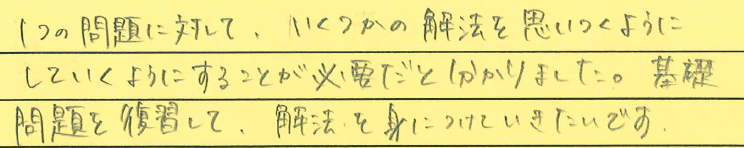 1つの問題に対して、いくつかの解法を思いつくように
していくようにすることが必要だと分かりました。基礎
問題を復習して、解法を身につけていきたいです.